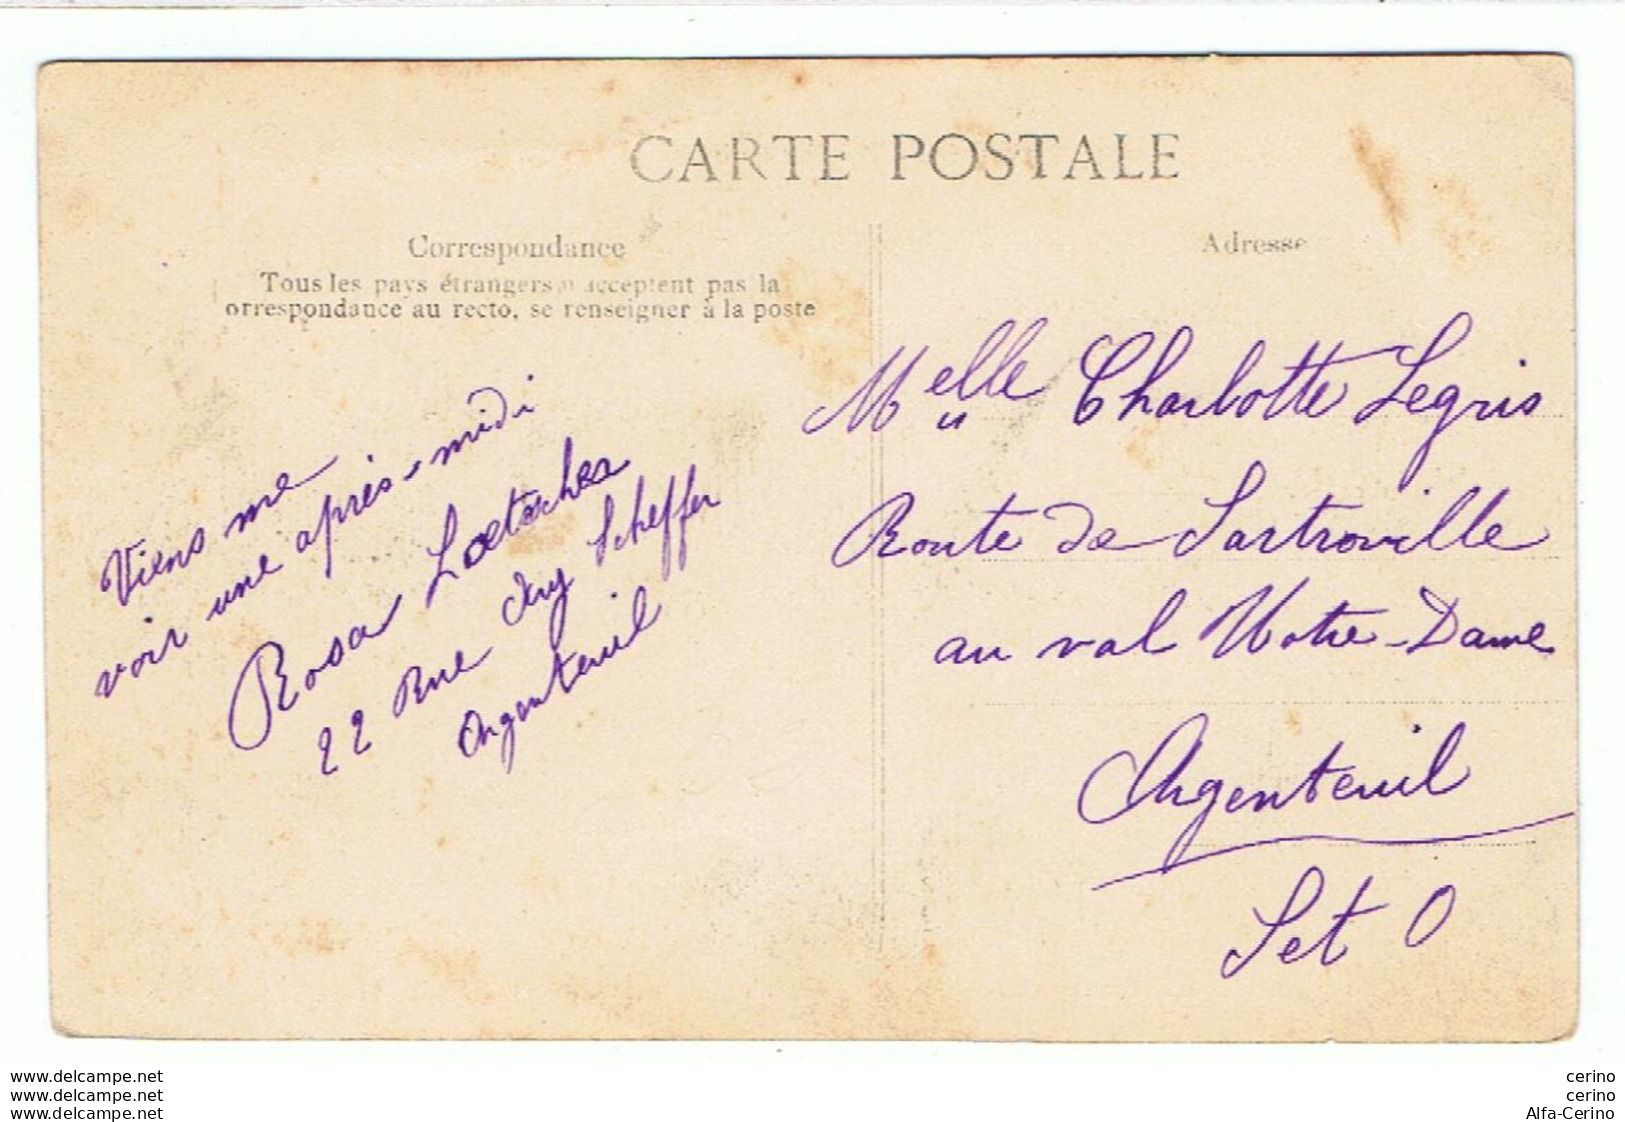 CARTE POSTALE
Correspondance
Tous les pays étrangers n'acceptent pas la
orrespondance au recto, se renseigner à la poste
Viens me
voir une après-midi
Rosa
22 Rue Ary Scheffer
Argenteuil
Adresse
Melle Charlotte Legris
Route de Sartrouville
au val Notre-Dame
Argenteuil
S et O
www.delcampe.net
www.delcampe.net
www.delcampe.net
cerino
cerino
Alfa-Cerino